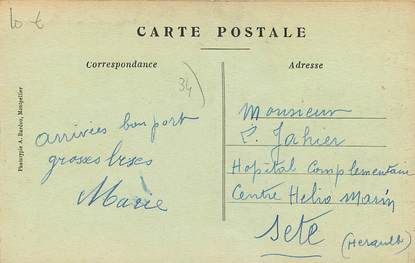 10 €
CARTE POSTALE
Correspondance
Adresse
34
Phototypie A. Bardou, Montpellier
arrivées bon port
grosses bises
Marie
Monsieur
P. Jahier
Hopital Complementaire
Centre Helio Marin
Sete
(Herault)